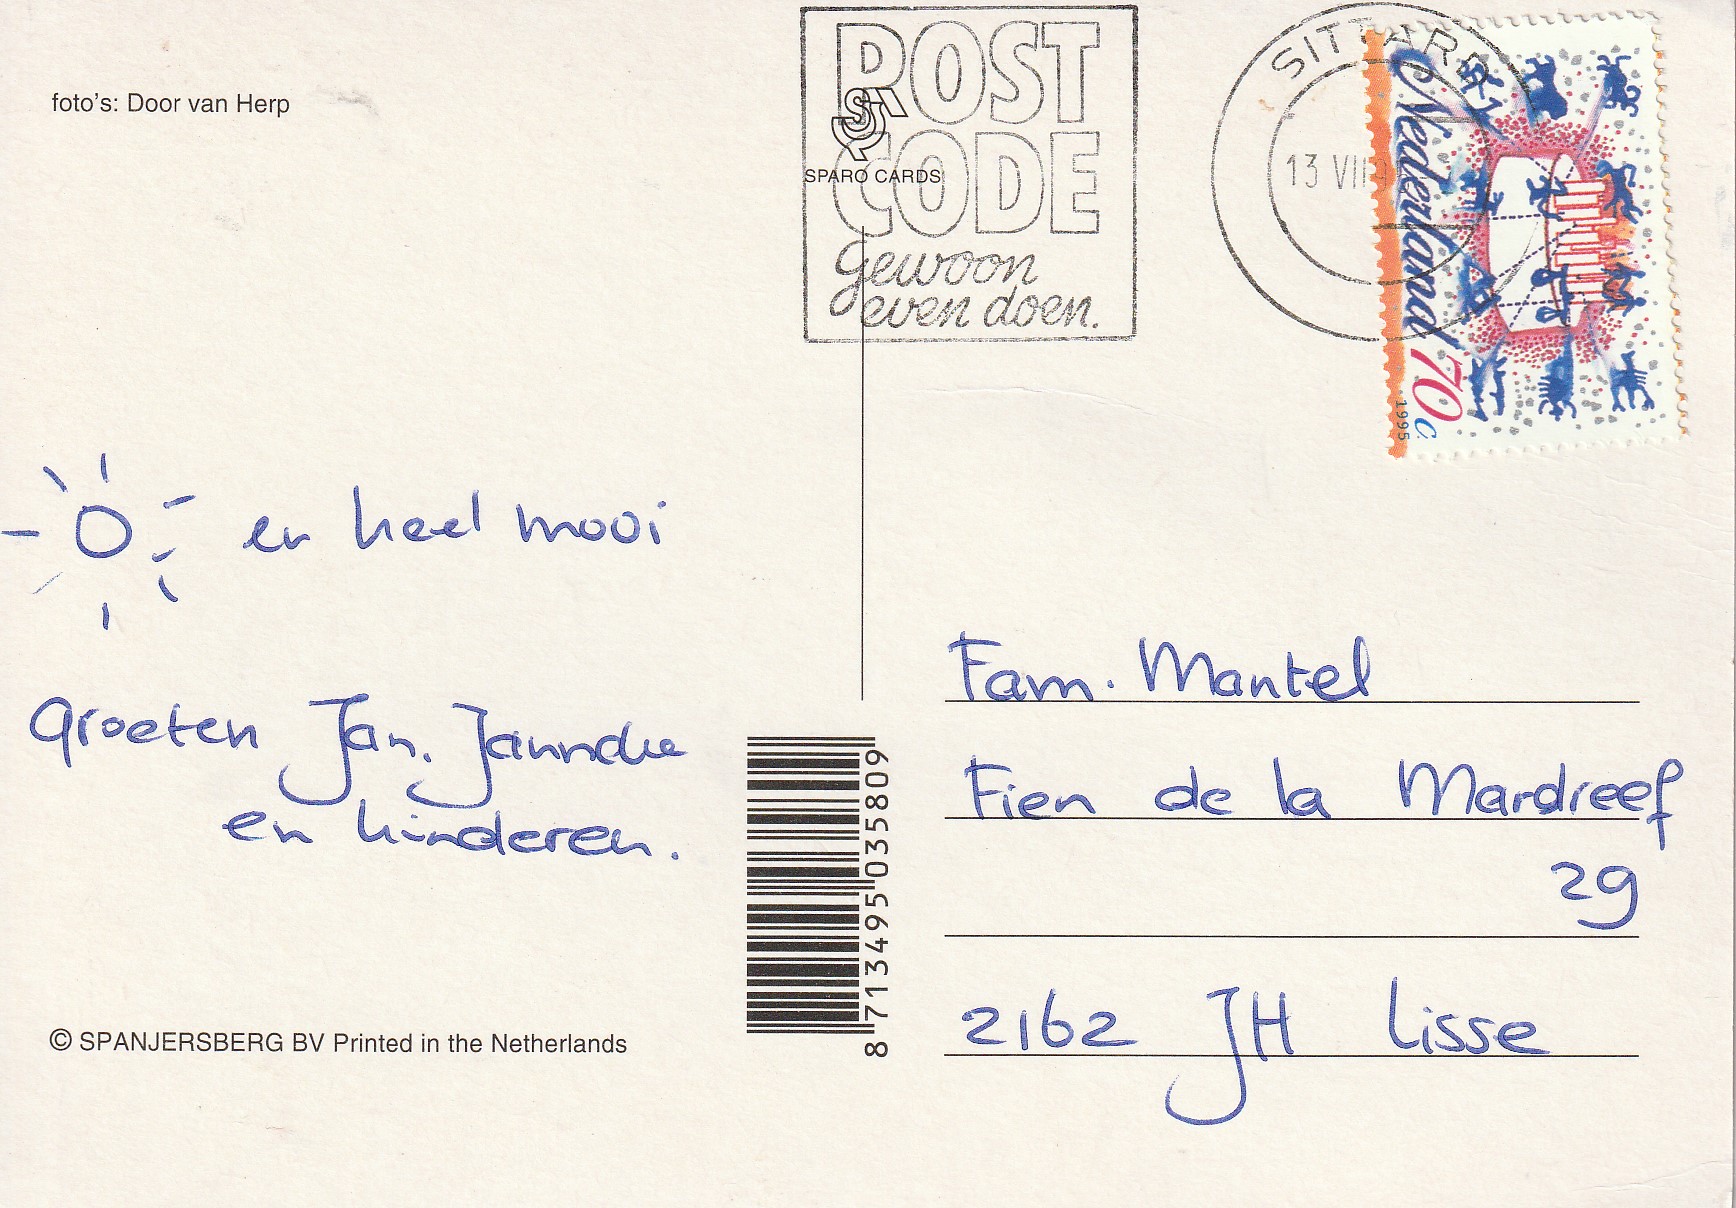 foto's: Door van Herp
POST
CODE
gewoon
even doen.
SPARO CARDS
SITTARD
13 VII
Nederland 70 c
1995
en heel mooi
groeten Jan, Janneke
en kinderen.
Fam. Mantel
Fien de la Mardreef
29
2162 JH Lisse
8 713495 035809
© SPANJERSBERG BV Printed in the Netherlands